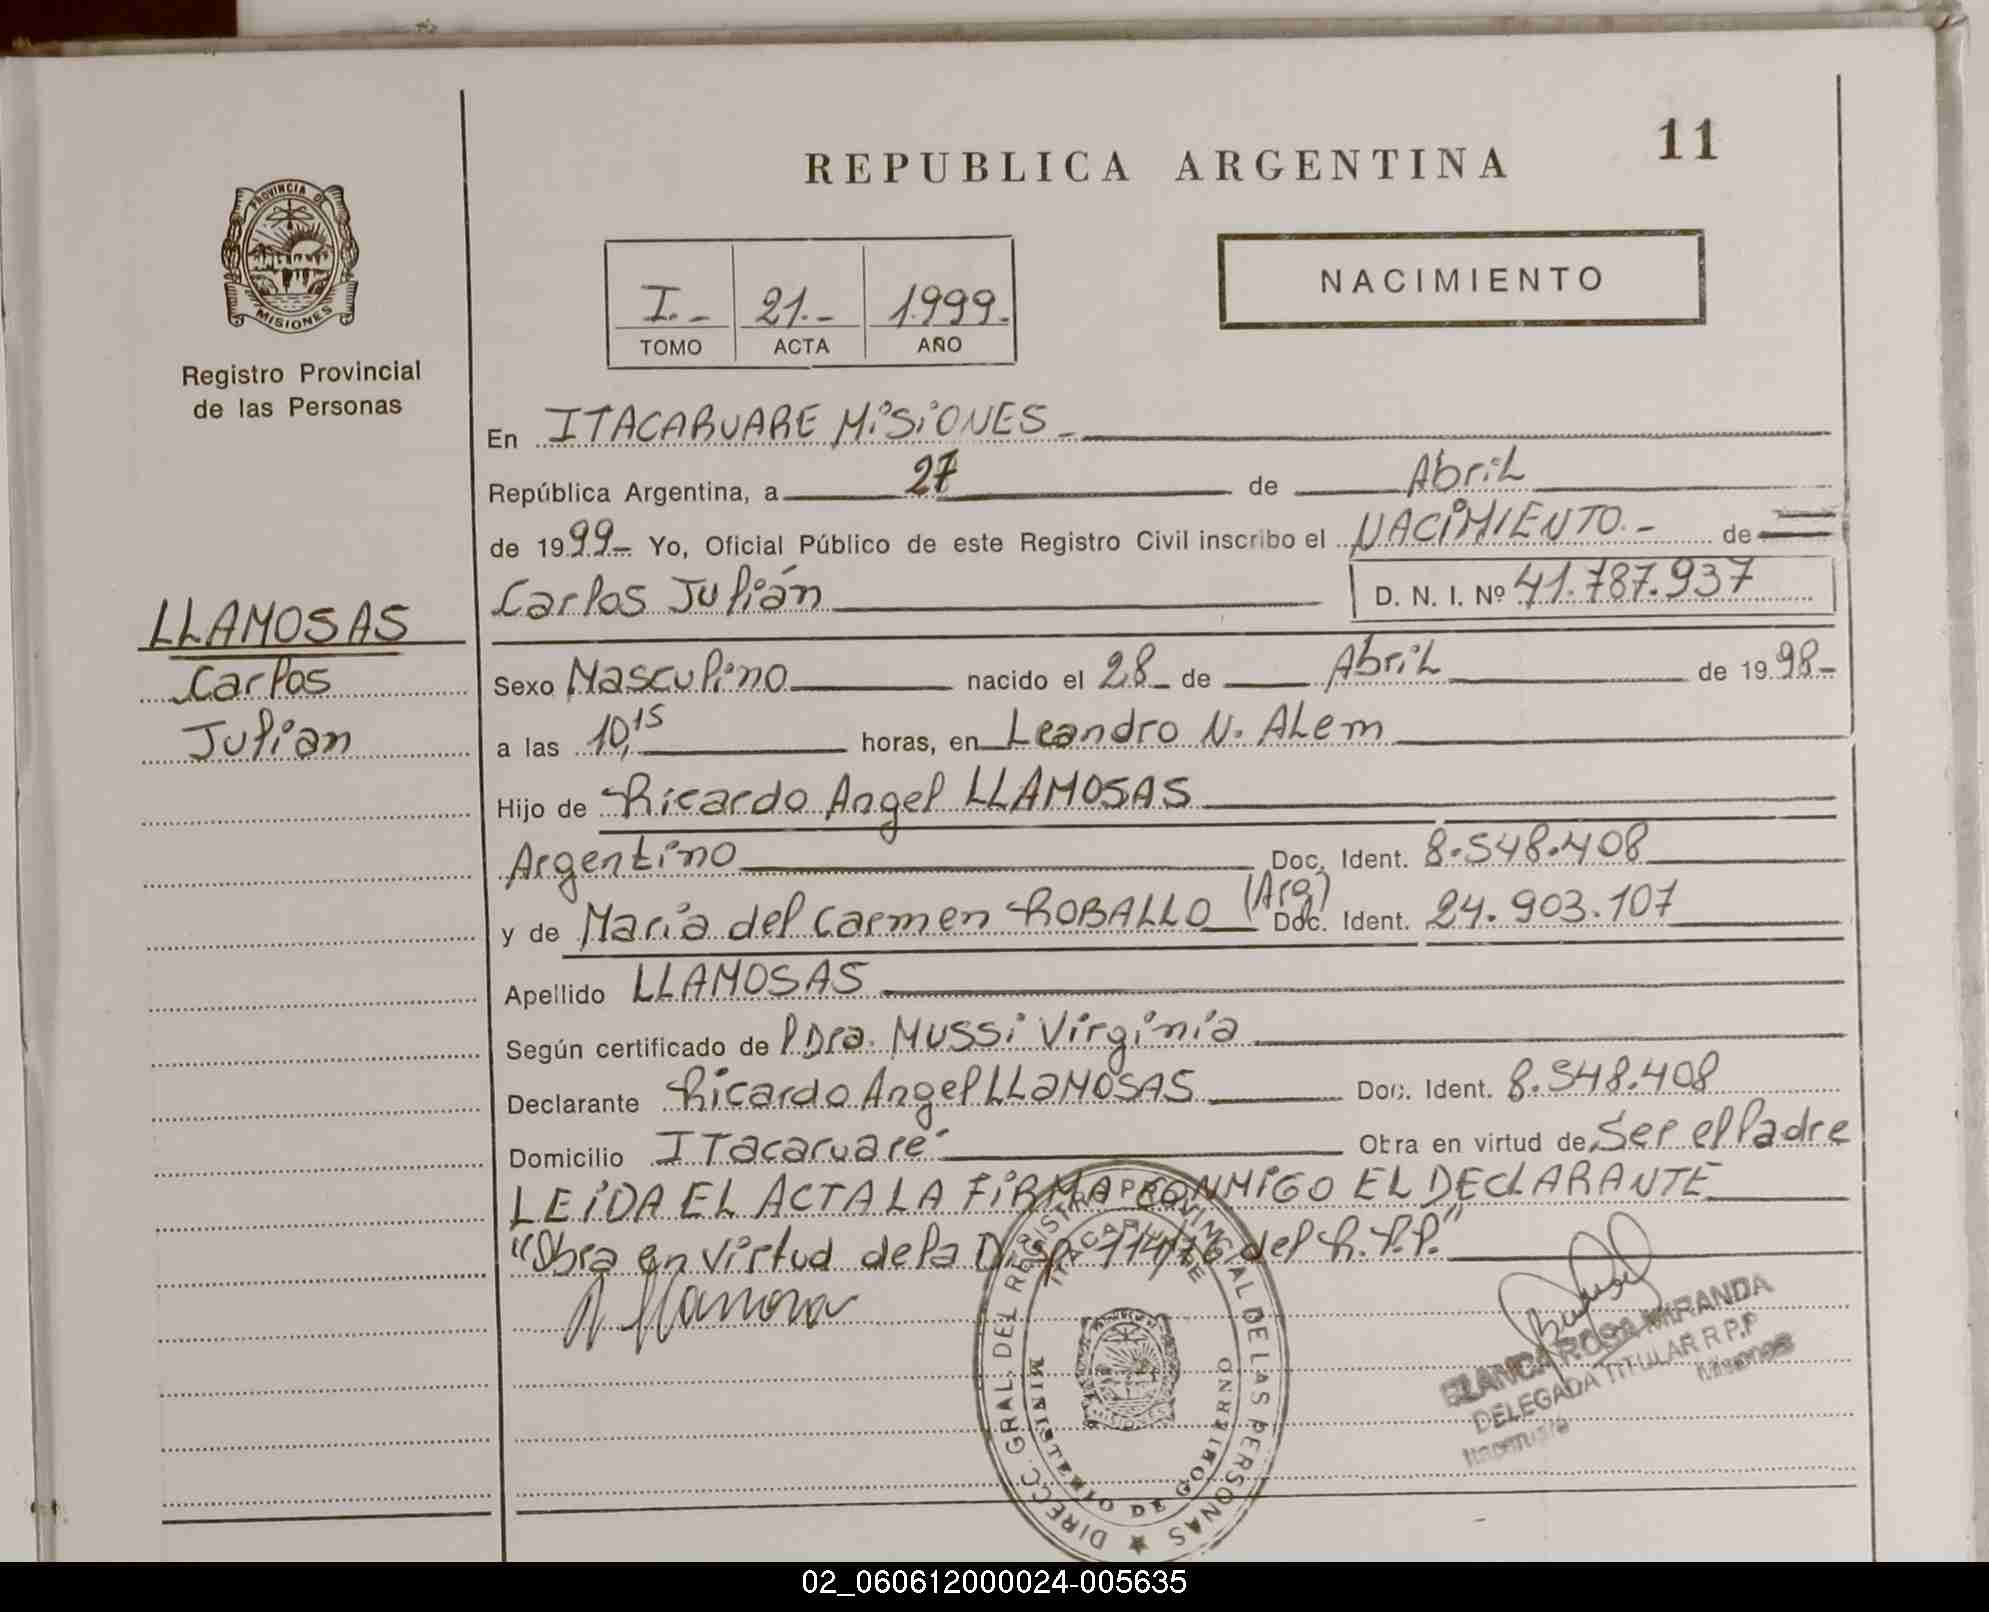 11
REPUBLICA ARGENTINA
NACIMIENTO
PROVINCIA DE
MISIONES
Registro Provincial
de las Personas
I.- 21.- 1.999.-
TOMO ACTA AÑO
En ITACARUARE MiSiONES -
República Argentina, a 27 de Abril
de 1999- Yo, Oficial Público de este Registro Civil inscribo el NACIMIENTO.- de
Carlos Julián D. N. I. Nº 41.787.937
LLAMOSAS
Carlos
Julian
Sexo Masculino nacido el 28 de Abril de 1998-
a las 10,15 horas, en Leandro N. ALem
Hijo de Ricardo Angel LLAMOSAS
Argentino Doc. Ident. 8.548.408
y de María del Carmen ROBALLO (Arg) Doc. Ident. 24.903.107
Apellido LLAMOSAS
Según certificado de Dra. MUSSi Virginia
Declarante Ricardo Angel LLaMOSAS Doc. Ident. 8.548.408
Domicilio ITacaruaré Obra en virtud de Ser el Padre
LEiDA EL ACTA LA FiRMA CONMiGO EL DECLARANTE
"Obra en virtud de la Disp. 114/76 del R.P.P."
DIRECC. GRAL. DEL REGISTRO PROVINCIAL DE LAS PERSONAS
ITACARUARE
MINISTERIO DE GOBIERNO
BLANCA ROSA MIRANDA
DELEGADA TITULAR R.P.P
Itacaruare Misiones
02_060612000024-005635